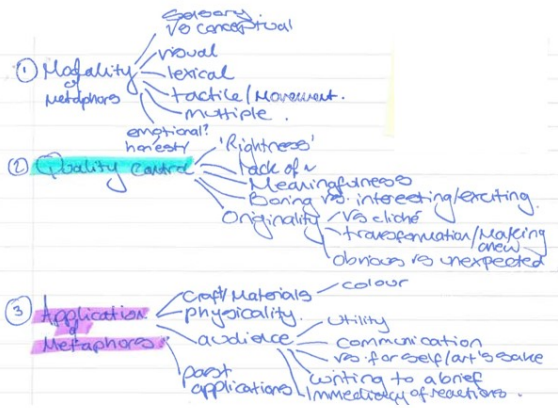 Sensory
vs conceptual
visual
① Modality
of
metaphors
lexical
tactile/Movement.
multiple.
emotional?
honesty
② Quality control
'Rightness'
Lack of ~
Meaningfulness
Boring vs. interesting/exciting.
Originality
vs cliché
transformation/Making
anew
obvious vs unexpected
③ Application
of
Metaphors
Craft/Materials
colour
physicality.
audience
utility
communication
vs. for self/art's sake
writing to a brief
Immediacy of reactions.
past
applications